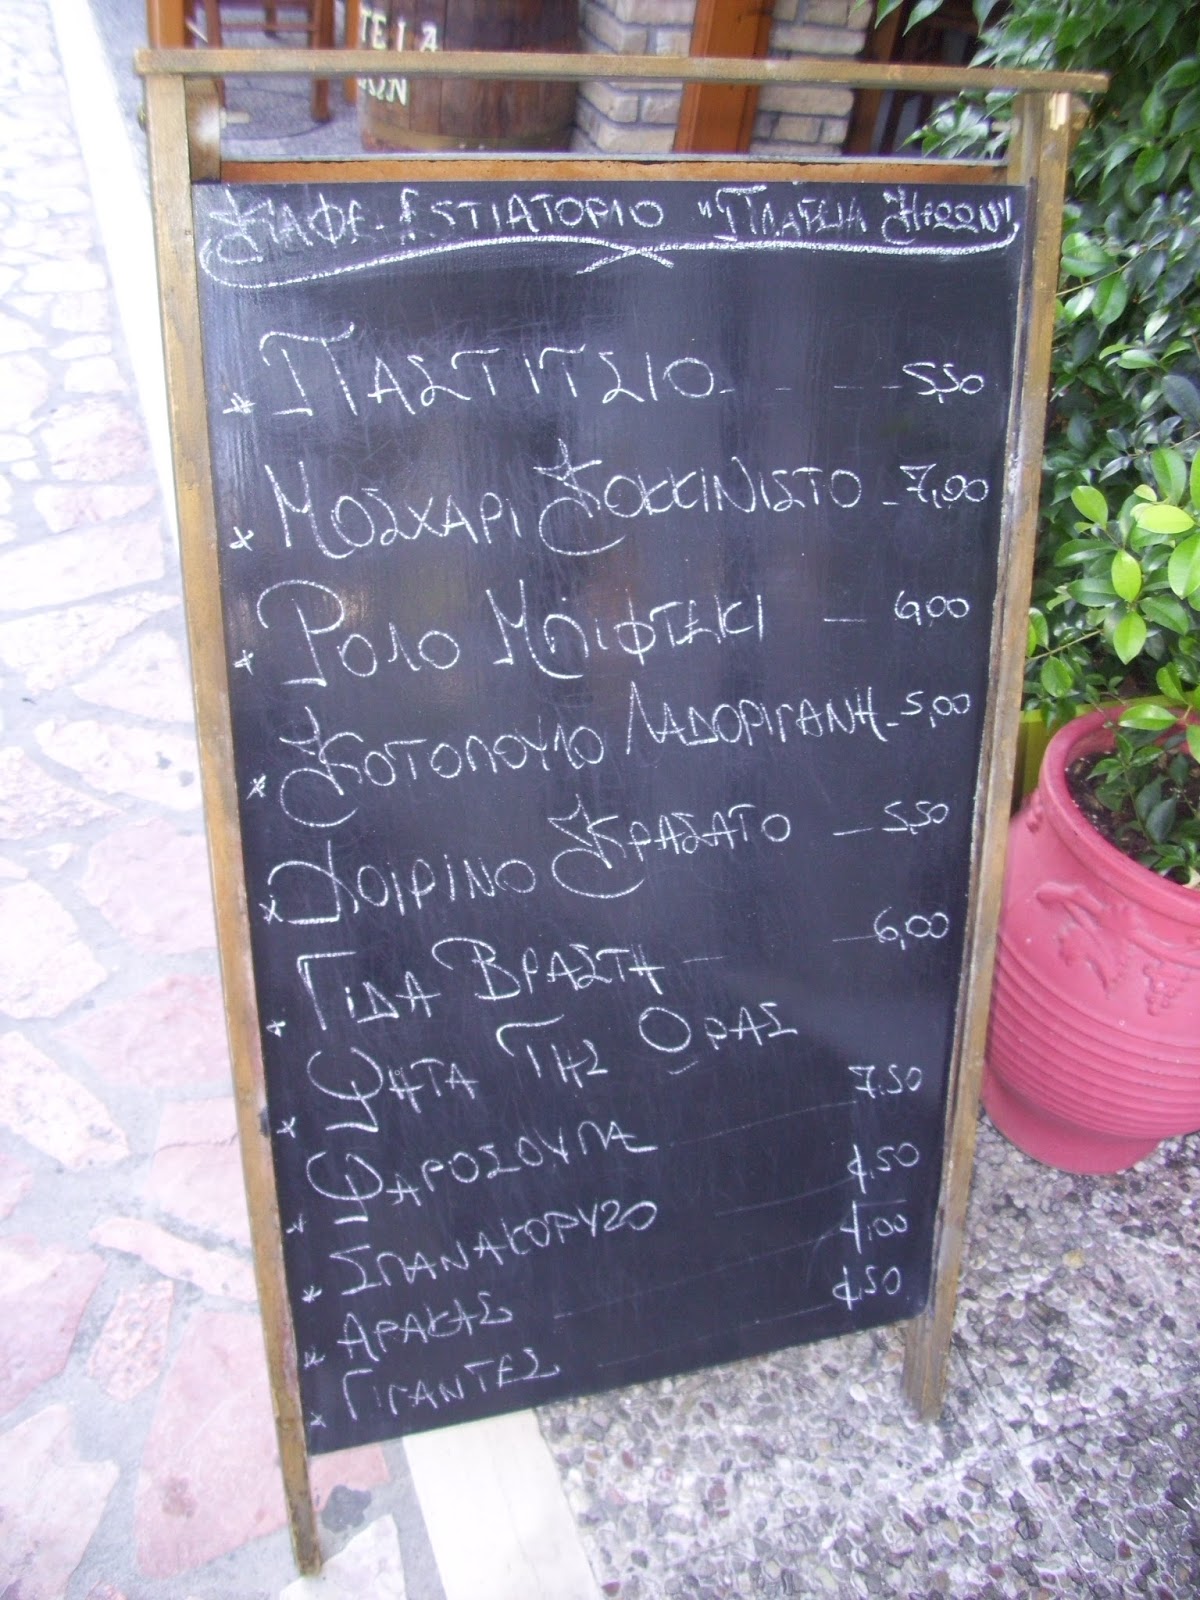 ΤΕΙΑ
ΩΝ
ΚΑΦΕ-ΕΣΤΙΑΤΟΡΙΟ "ΠΛΑΤΕΙΑ ΗΡΩΩΝ"
* ΠΑΣΤΙΤΣΙΟ - - - - 5,50
* ΜΟΣΧΑΡΙ ΚΟΚΚΙΝΙΣΤΟ - 7,00
* ΡΟΛΟ ΜΠΙΦΤΕΚΙ - 6,00
* ΚΟΤΟΠΟΥΛΟ ΛΑΔΟΡΙΓΑΝΗ - 5,00
* ΧΟΙΡΙΝΟ ΚΡΑΣΑΤΟ - 5,50
* ΓΙΔΑ ΒΡΑΣΤΗ - - 6,00
* ΨΗΤΑ ΤΗΣ ΩΡΑΣ
* ΨΑΡΟΣΟΥΠΑ 7.50
* ΣΠΑΝΑΚΟΡΥΖΟ 4.50
* ΑΡΑΚΑΣ 4.00
* ΓΙΓΑΝΤΕΣ 4.50